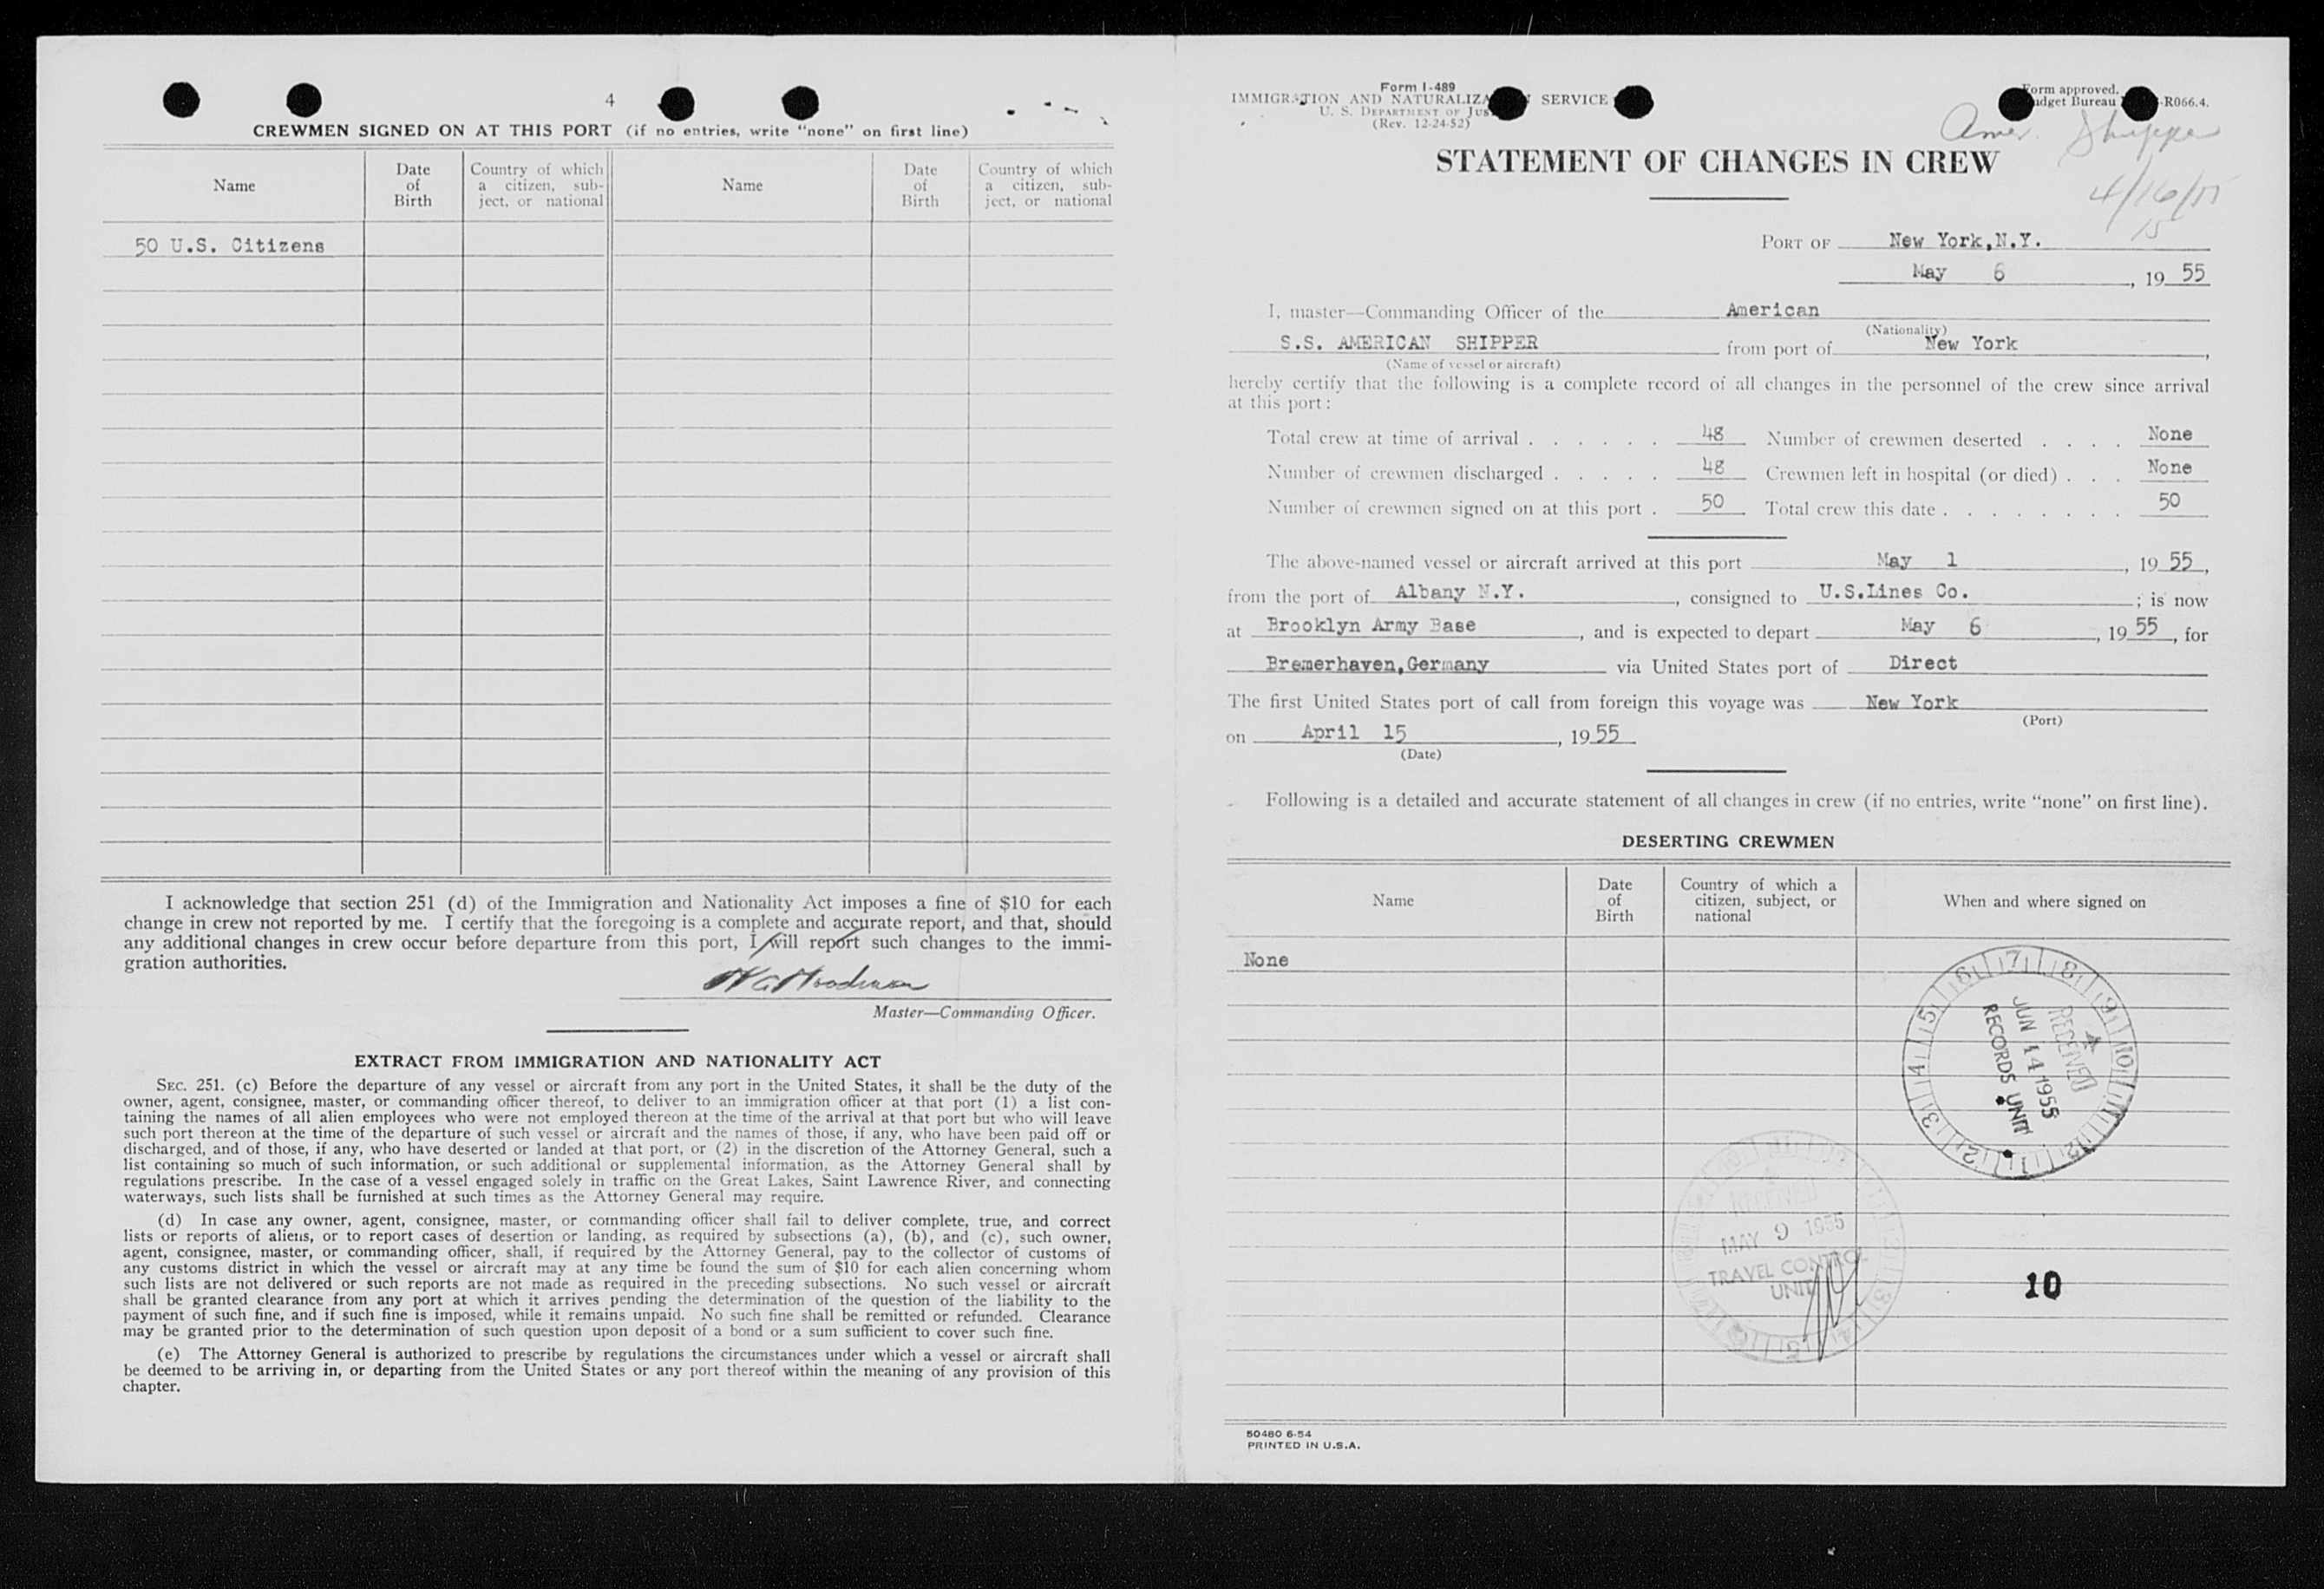 4
CREWMEN SIGNED ON AT THIS PORT (if no entries, write "none" on first line)
Name
Date of Birth
Country of which a citizen, sub-ject, or national
Name
Date of Birth
Country of which a citizen, sub-ject, or national
50 U.S. Citizens
I acknowledge that section 251 (d) of the Immigration and Nationality Act imposes a fine of $10 for each
change in crew not reported by me. I certify that the foregoing is a complete and accurate report, and that, should
any additional changes in crew occur before departure from this port, I will report such changes to the immi-
gration authorities.
Master—Commanding Officer.
EXTRACT FROM IMMIGRATION AND NATIONALITY ACT
SEC. 251. (c) Before the departure of any vessel or aircraft from any port in the United States, it shall be the duty of the
owner, agent, consignee, master, or commanding officer thereof, to deliver to an immigration officer at that port (1) a list con-
taining the names of all alien employees who were not employed thereon at the time of the arrival at that port but who will leave
such port thereon at the time of the departure of such vessel or aircraft and the names of those, if any, who have been paid off or
discharged, and of those, if any, who have deserted or landed at that port, or (2) in the discretion of the Attorney General, such a
list containing so much of such information, or such additional or supplemental information, as the Attorney General shall by
regulations prescribe. In the case of a vessel engaged solely in traffic on the Great Lakes, Saint Lawrence River, and connecting
waterways, such lists shall be furnished at such times as the Attorney General may require.
(d) In case any owner, agent, consignee, master, or commanding officer shall fail to deliver complete, true, and correct
lists or reports of aliens, or to report cases of desertion or landing, as required by subsections (a), (b), and (c), such owner,
agent, consignee, master, or commanding officer, shall, if required by the Attorney General, pay to the collector of customs of
any customs district in which the vessel or aircraft may at any time be found the sum of $10 for each alien concerning whom
such lists are not delivered or such reports are not made as required in the preceding subsections. No such vessel or aircraft
shall be granted clearance from any port at which it arrives pending the determination of the question of the liability to the
payment of such fine, and if such fine is imposed, while it remains unpaid. No such fine shall be remitted or refunded. Clearance
may be granted prior to the determination of such question upon deposit of a bond or a sum sufficient to cover such fine.
(e) The Attorney General is authorized to prescribe by regulations the circumstances under which a vessel or aircraft shall
be deemed to be arriving in, or departing from the United States or any port thereof within the meaning of any provision of this
chapter.
Form I-489
IMMIGRATION AND NATURALIZA SERVICE
U. S. DEPARTMENT OF JUS
(Rev. 12-24-52)
Form approved.
udget Bureau -R066.4.
Amer. Shipper
4/16/55
15
STATEMENT OF CHANGES IN CREW
PORT OF New York, N.Y.
May 6, 19 55
I, master—Commanding Officer of the American
(Nationality)
S.S. AMERICAN SHIPPER from port of New York,
(Name of vessel or aircraft)
hereby certify that the following is a complete record of all changes in the personnel of the crew since arrival
at this port:
Total crew at time of arrival . . . . . . 48 Number of crewmen deserted . . . . None
Number of crewmen discharged . . . . . 48 Crewmen left in hospital (or died) . . . None
Number of crewmen signed on at this port . 50 Total crew this date . . . . . . . . 50
The above-named vessel or aircraft arrived at this port May 1, 19 55,
from the port of Albany N.Y., consigned to U.S.Lines Co.; is now
at Brooklyn Army Base, and is expected to depart May 6, 19 55, for
Bremerhaven, Germany via United States port of Direct
The first United States port of call from foreign this voyage was New York
(Port)
on April 15, 19 55
(Date)
Following is a detailed and accurate statement of all changes in crew (if no entries, write "none" on first line).
DESERTING CREWMEN
Name
Date of Birth
Country of which a citizen, subject, or national
When and where signed on
None
RECEIVED
JUN 14 1955
RECORDS UNIT
RECEIVED
MAY 9 1955
TRAVEL CONTROL
UNIT
10
50480 6-54
PRINTED IN U.S.A.